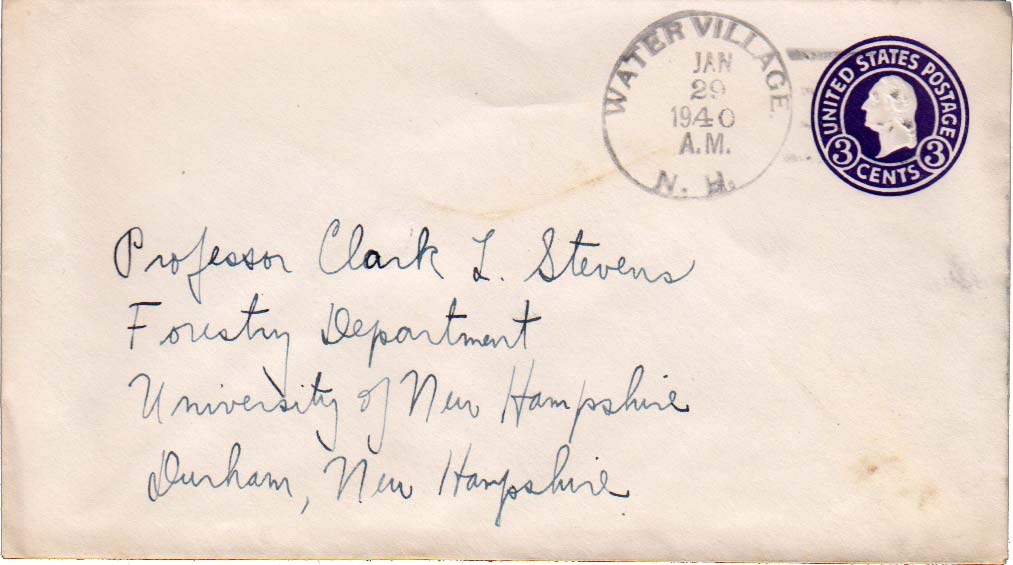 WATER VILLAGE.
JAN
29
1940
A.M.
N. H.
UNITED STATES POSTAGE
3 CENTS 3
Professor Clark L. Stevens
Forestry Department
University of New Hampshire
Durham, New Hampshire